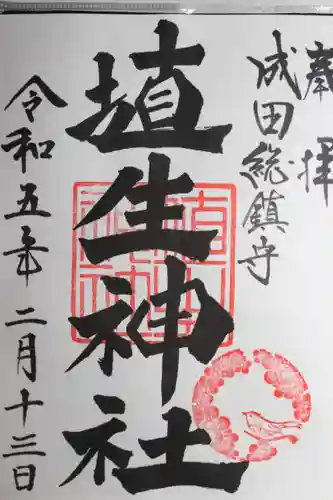 奉拝
成田総鎮守
埴生神社
令和五年 二月十三日